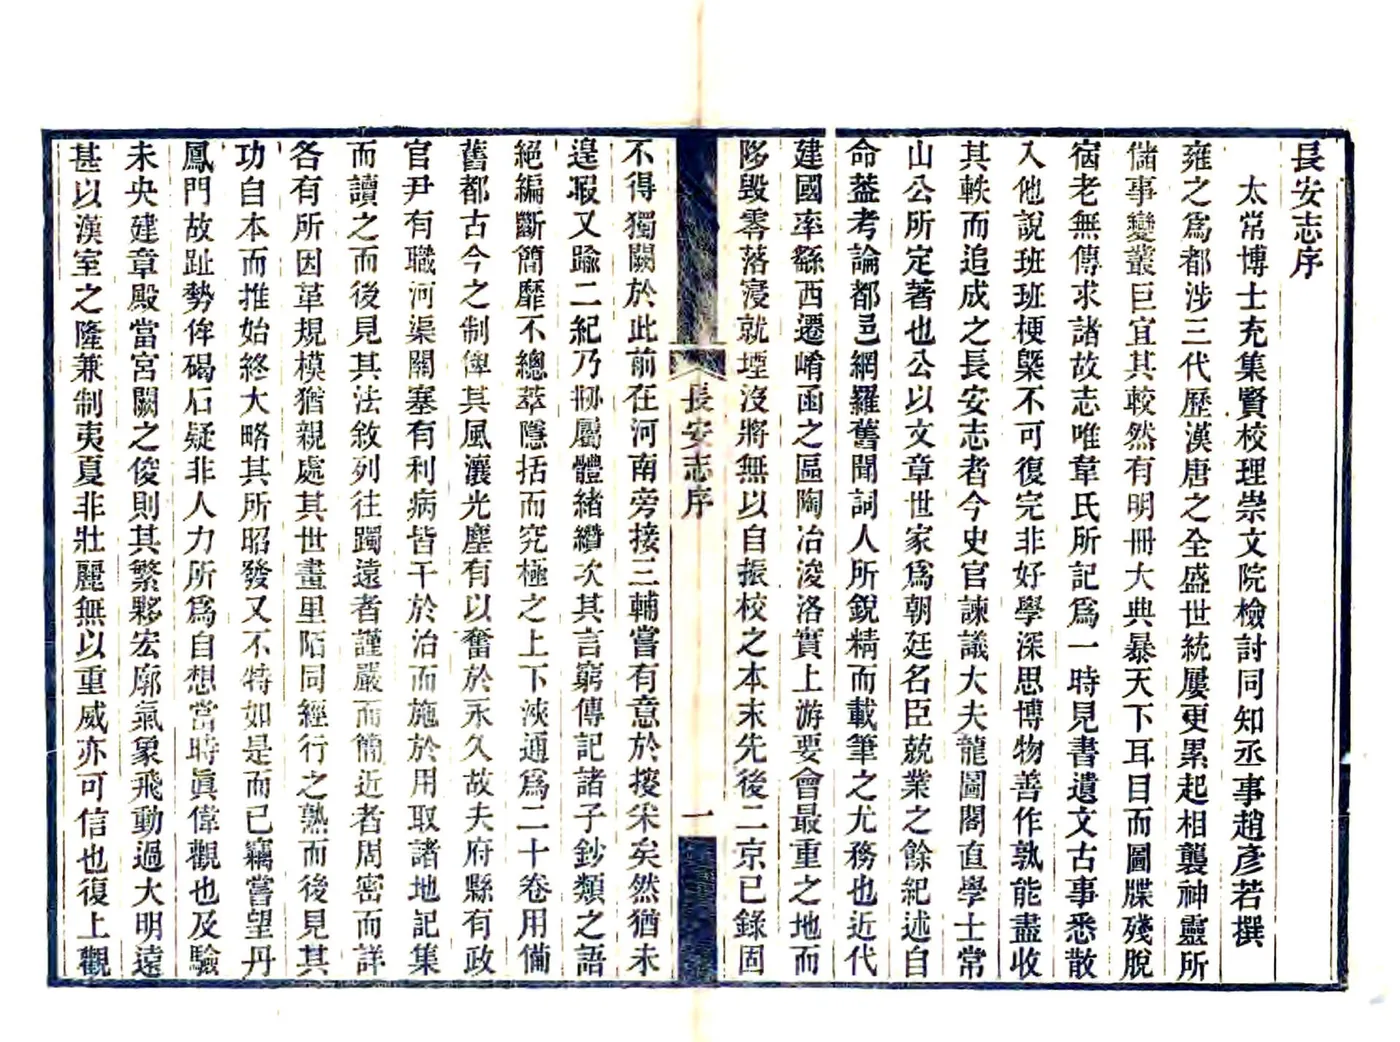 長安志序
太常博士充集賢校理崇文院檢討同知丞事趙彥若撰
雍之爲都涉三代歷漢唐之全盛世統屢更累起相襲神靈所
儲事變叢巨宜其較然有明冊大典暴天下耳目而圖牒殘脫
宿老無傳求諸故志唯韋氏所記爲一時見書遺文古事悉散
入他說班班梗槩不可復完非好學深思博物善作孰能盡收
其軼而追成之長安志者今史官諫議大夫龍圖閣直學士常
山公所定著也公以文章世家爲朝廷名臣兢業之餘紀述自
命葢考論都邑網羅舊聞詞人所銳精而載筆之尤務也近代
建國率繇西遷崤函之區陶冶浚洛實上游要會最重之地而
陊毀零落寖就堙沒將無以自振校之本末先後二京已錄固
長安志序
一
不得獨闕於此前在河南旁接三輔嘗有意於搜采矣然猶未
遑暇又踰二紀乃刱屬體緖纘次其言窮傳記諸子鈔類之語
絕編斷簡靡不總萃隱括而究極之上下浹通爲二十卷用備
舊都古今之制俾其風瀼光塵有以奮於永久故夫府縣有政
官尹有職河渠關塞有利病皆干於治而施於用取諸地記集
而讀之而後見其法敘列往躅遠者謹嚴而簡近者周密而詳
各有所因革規模猶親處其世畫里陌同經行之熟而後見其
功自本而推始終大略其所昭發又不特如是而已竊嘗望丹
鳳門故趾勢侔碣石疑非人力所爲自想當時眞偉觀也及驗
未央建章殿當宮闕之俊則其繁夥宏廓氣象飛動過大明遠
甚以漢室之隆兼制夷夏非壯麗無以重威亦可信也復上觀